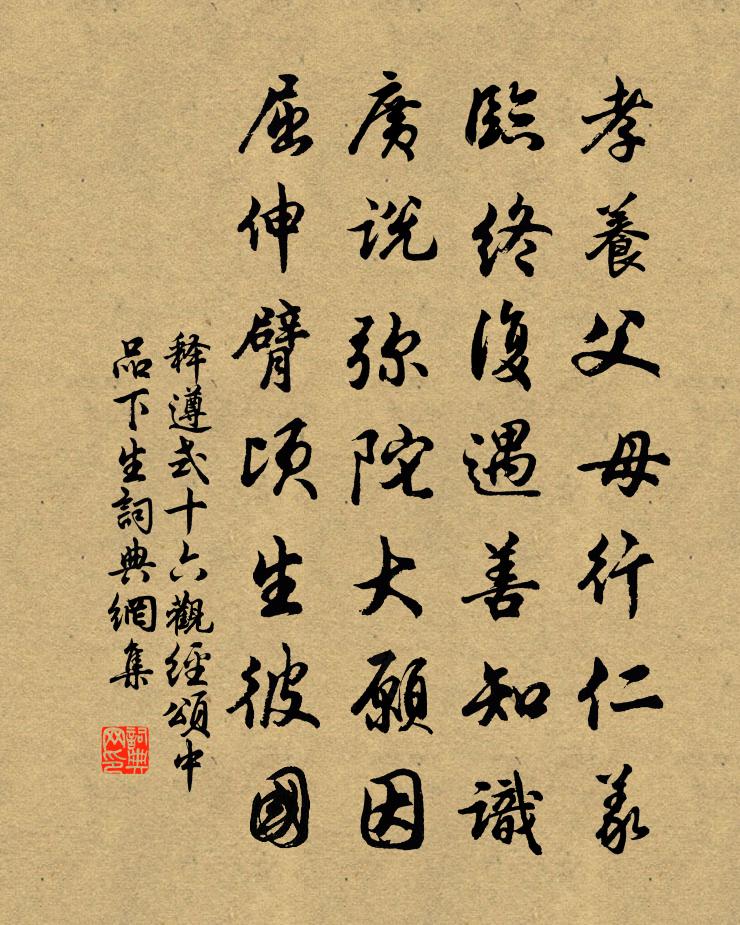 孝養父母行仁義
臨終復遇善知識
廣説弥陀大願因
屈伸臂頃生彼國
释遵式十六觀經頌中
品下生詞典網集
詞典
网印